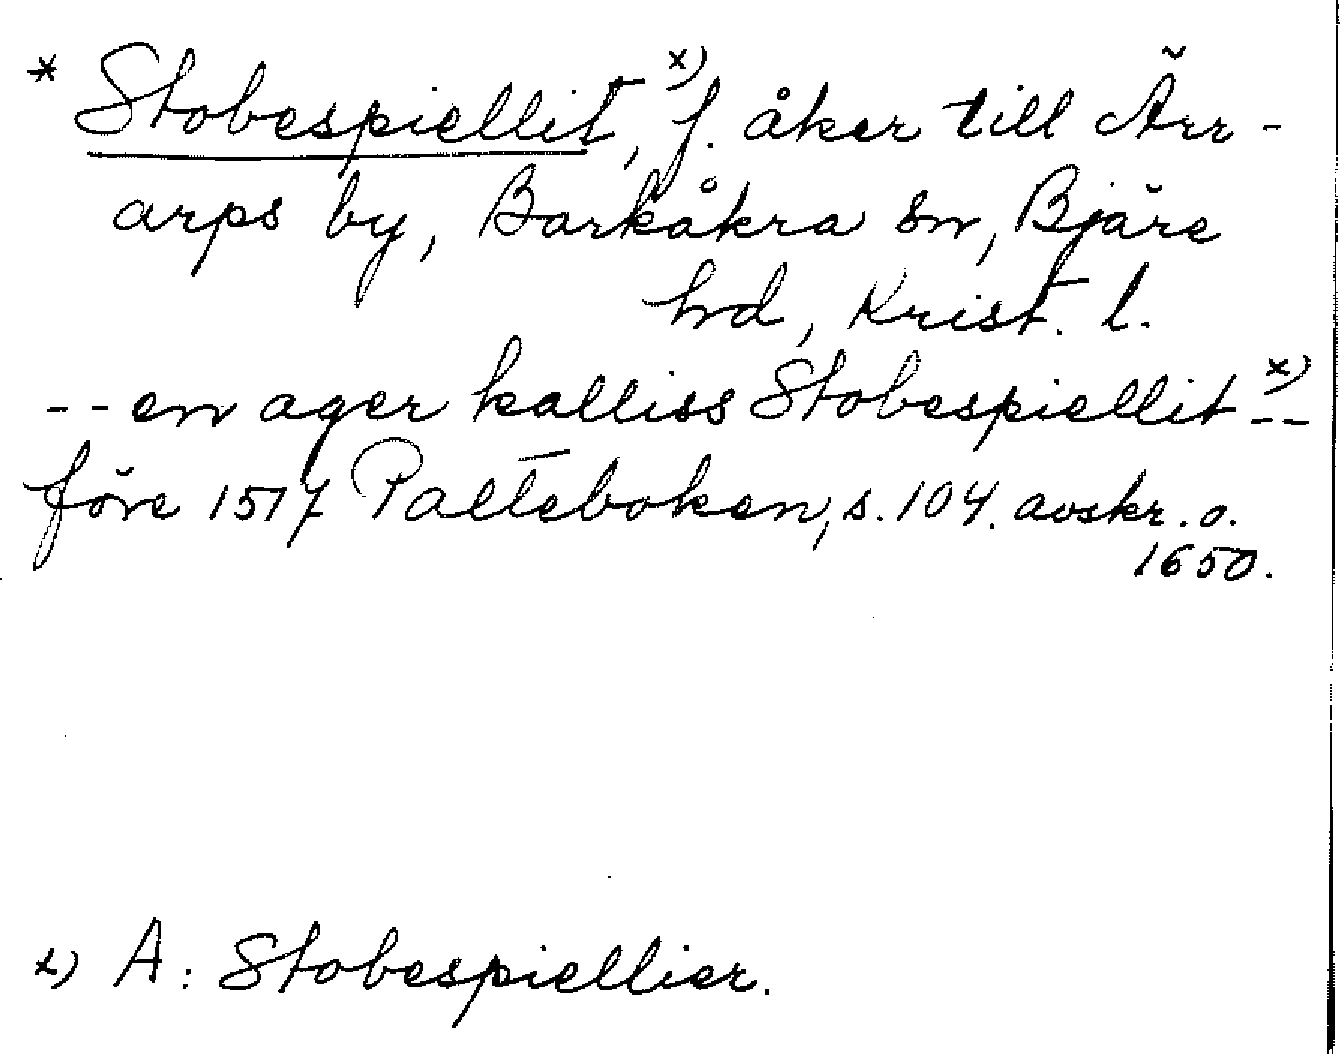 * Stobespiellit, x) f. åker till Ärr-
arps by, Barkåkra sn, Bjäre
hd, Krist. l.
-- en ager kalliss Stobespiellit x) --
före 1517 Palteboken, s. 104. avskr. o.
1650.
x) A: Stobespiellier.